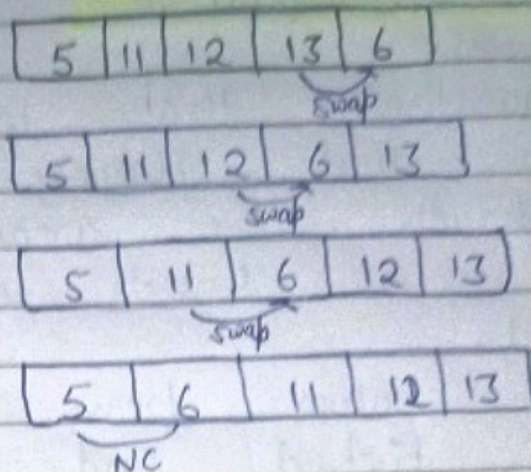 5 11 12 13 6
swap
5 11 12 6 13
swap
5 11 6 12 13
swap
5 6 11 12 13
NC